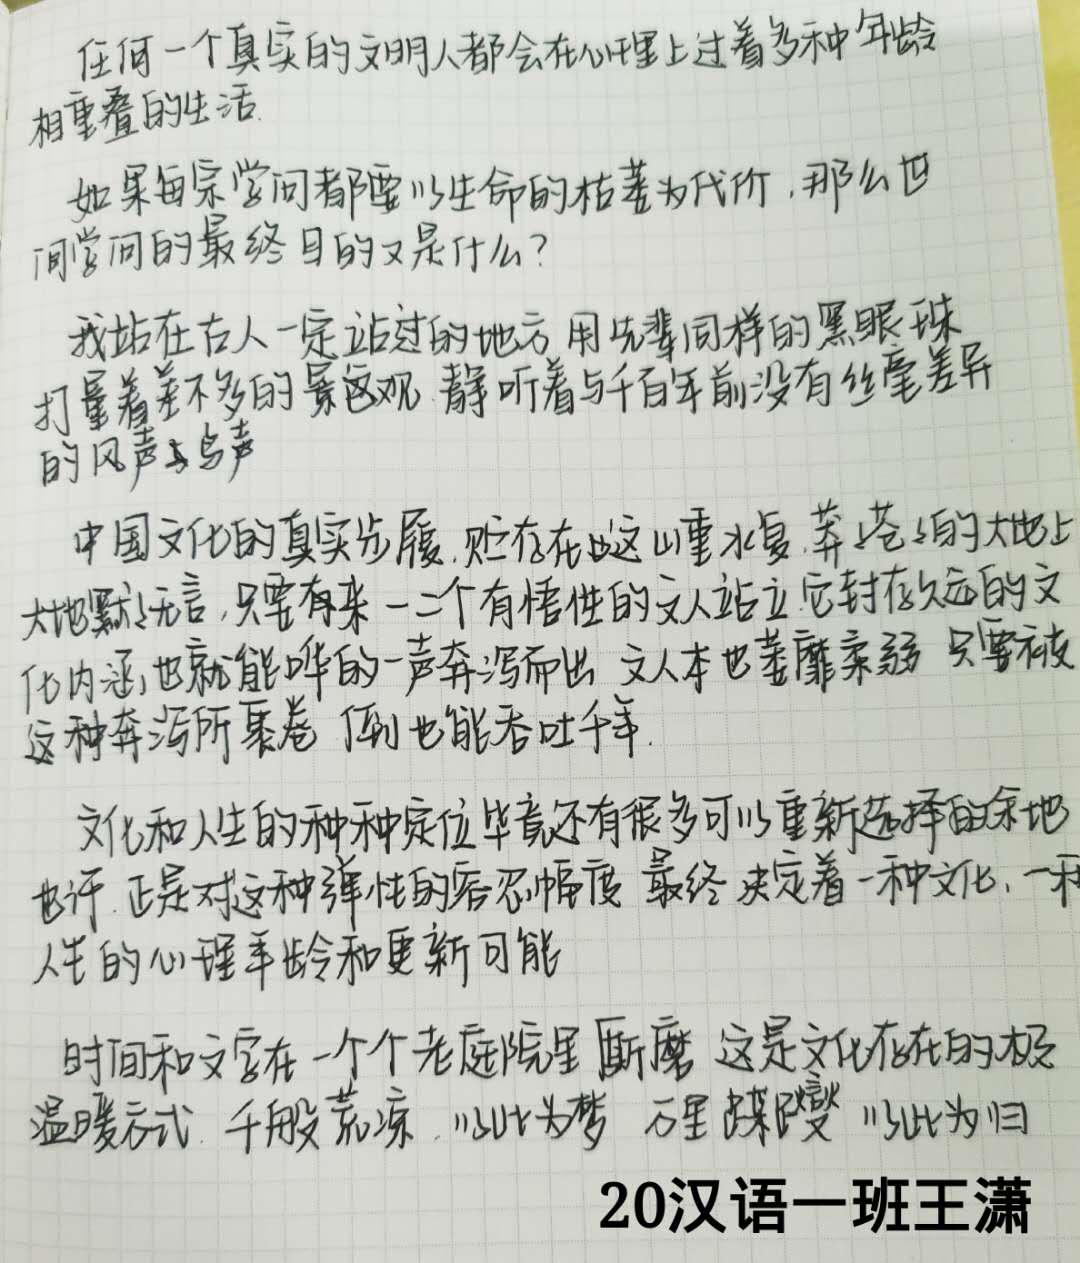 任何一个真实的文明人都会在心理上过着多种年龄
相重叠的生活.
如果每宗学问都要以生命的枯萎为代价,那么世
间学问的最终目的又是什么?
我站在古人一定站过的地方 用先辈同样的黑眼珠
打量着差不多的景观.静听着与千百年前没有丝毫差异
的风声与鸟声
中国文化的真实步履.贮存在这山重水复.莽々苍々的大地上
大地默々无言,只要有来一二个有悟性的文人站立.它封存久远的文
化内涵,也就能哗的一声奔泻而出 文人本也萎靡柔弱 只要被
这种奔泻所裹卷 倒也能吞吐千年.
文化和人生的种种定位毕竟还有很多可以重新选择的余地
也许.正是对这种弹性的容忍幅度 最终决定着一种文化、一种
人生的心理年龄和更新可能
时间和文字在一个个老庭院里厮磨 这是文化存在的极
温暖方式.千般荒凉.以此为梦 万里蹀躞 以此为归
20汉语一班王潇